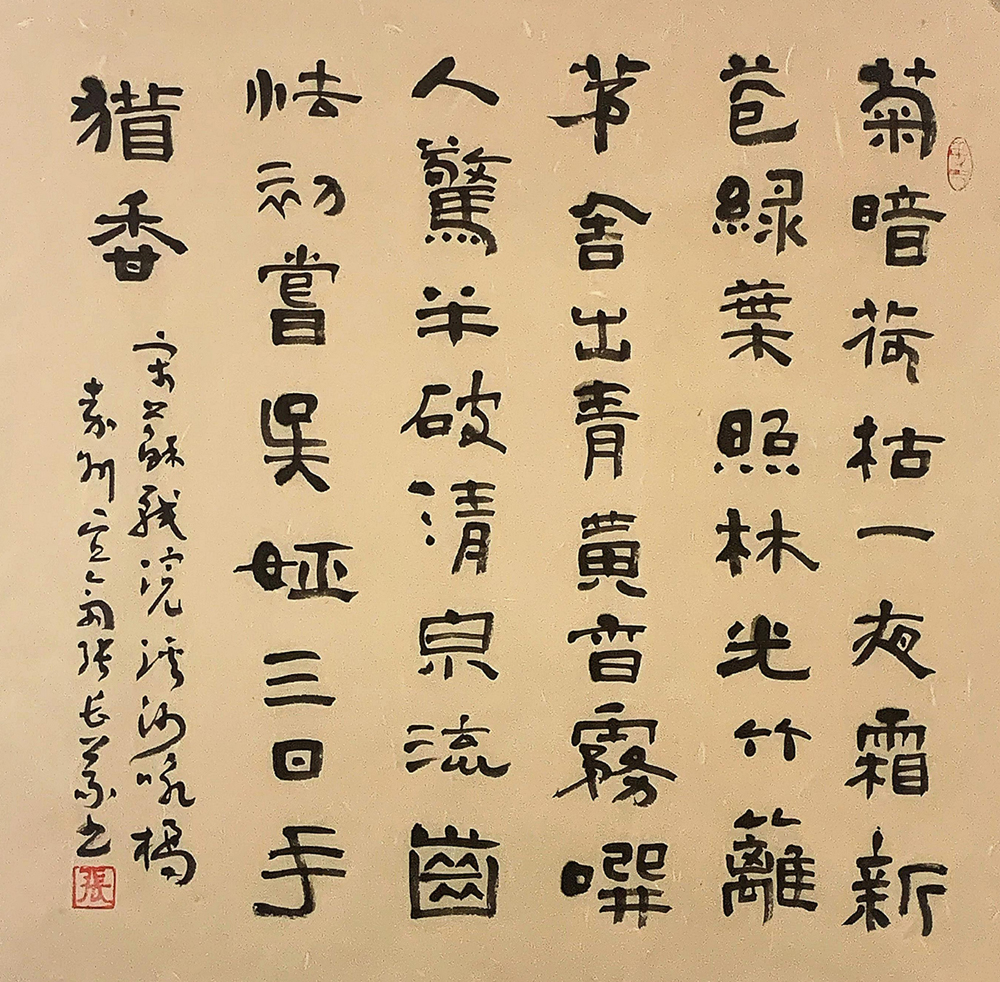 菊暗荷枯一夜霜新
苞緑葉照林光竹籬
茅舍出青黃香霧噀
人驚半破清泉流齒
怯初嘗吳姬三日手
猶香
宋蘇軾浣溪沙咏橘
袁州宜張長书
張